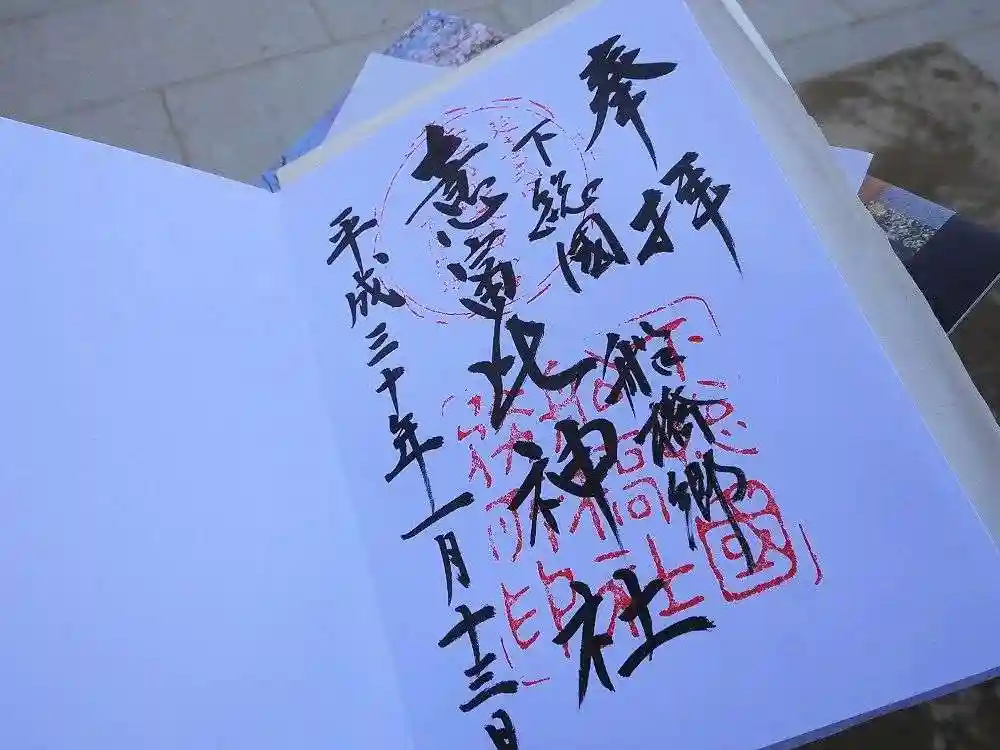 奉拝
下総國
船橋郷
意富比神社
平成三十年一月十三日